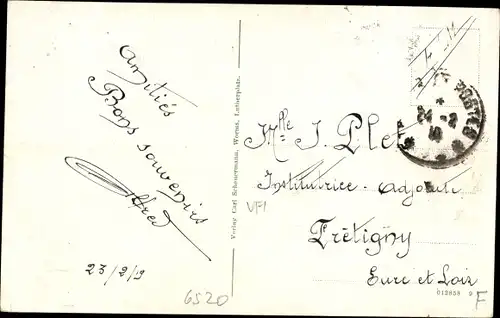 Amitiés
Bons souvenirs
23/2/9
6520
Verlag Carl Scheuermann, Worms, Lutherplatz.
VF1
Mlle J. Plet
Institutrice adjointe
Frétigny
Eure et Loir
013858 9
F
24 - 2